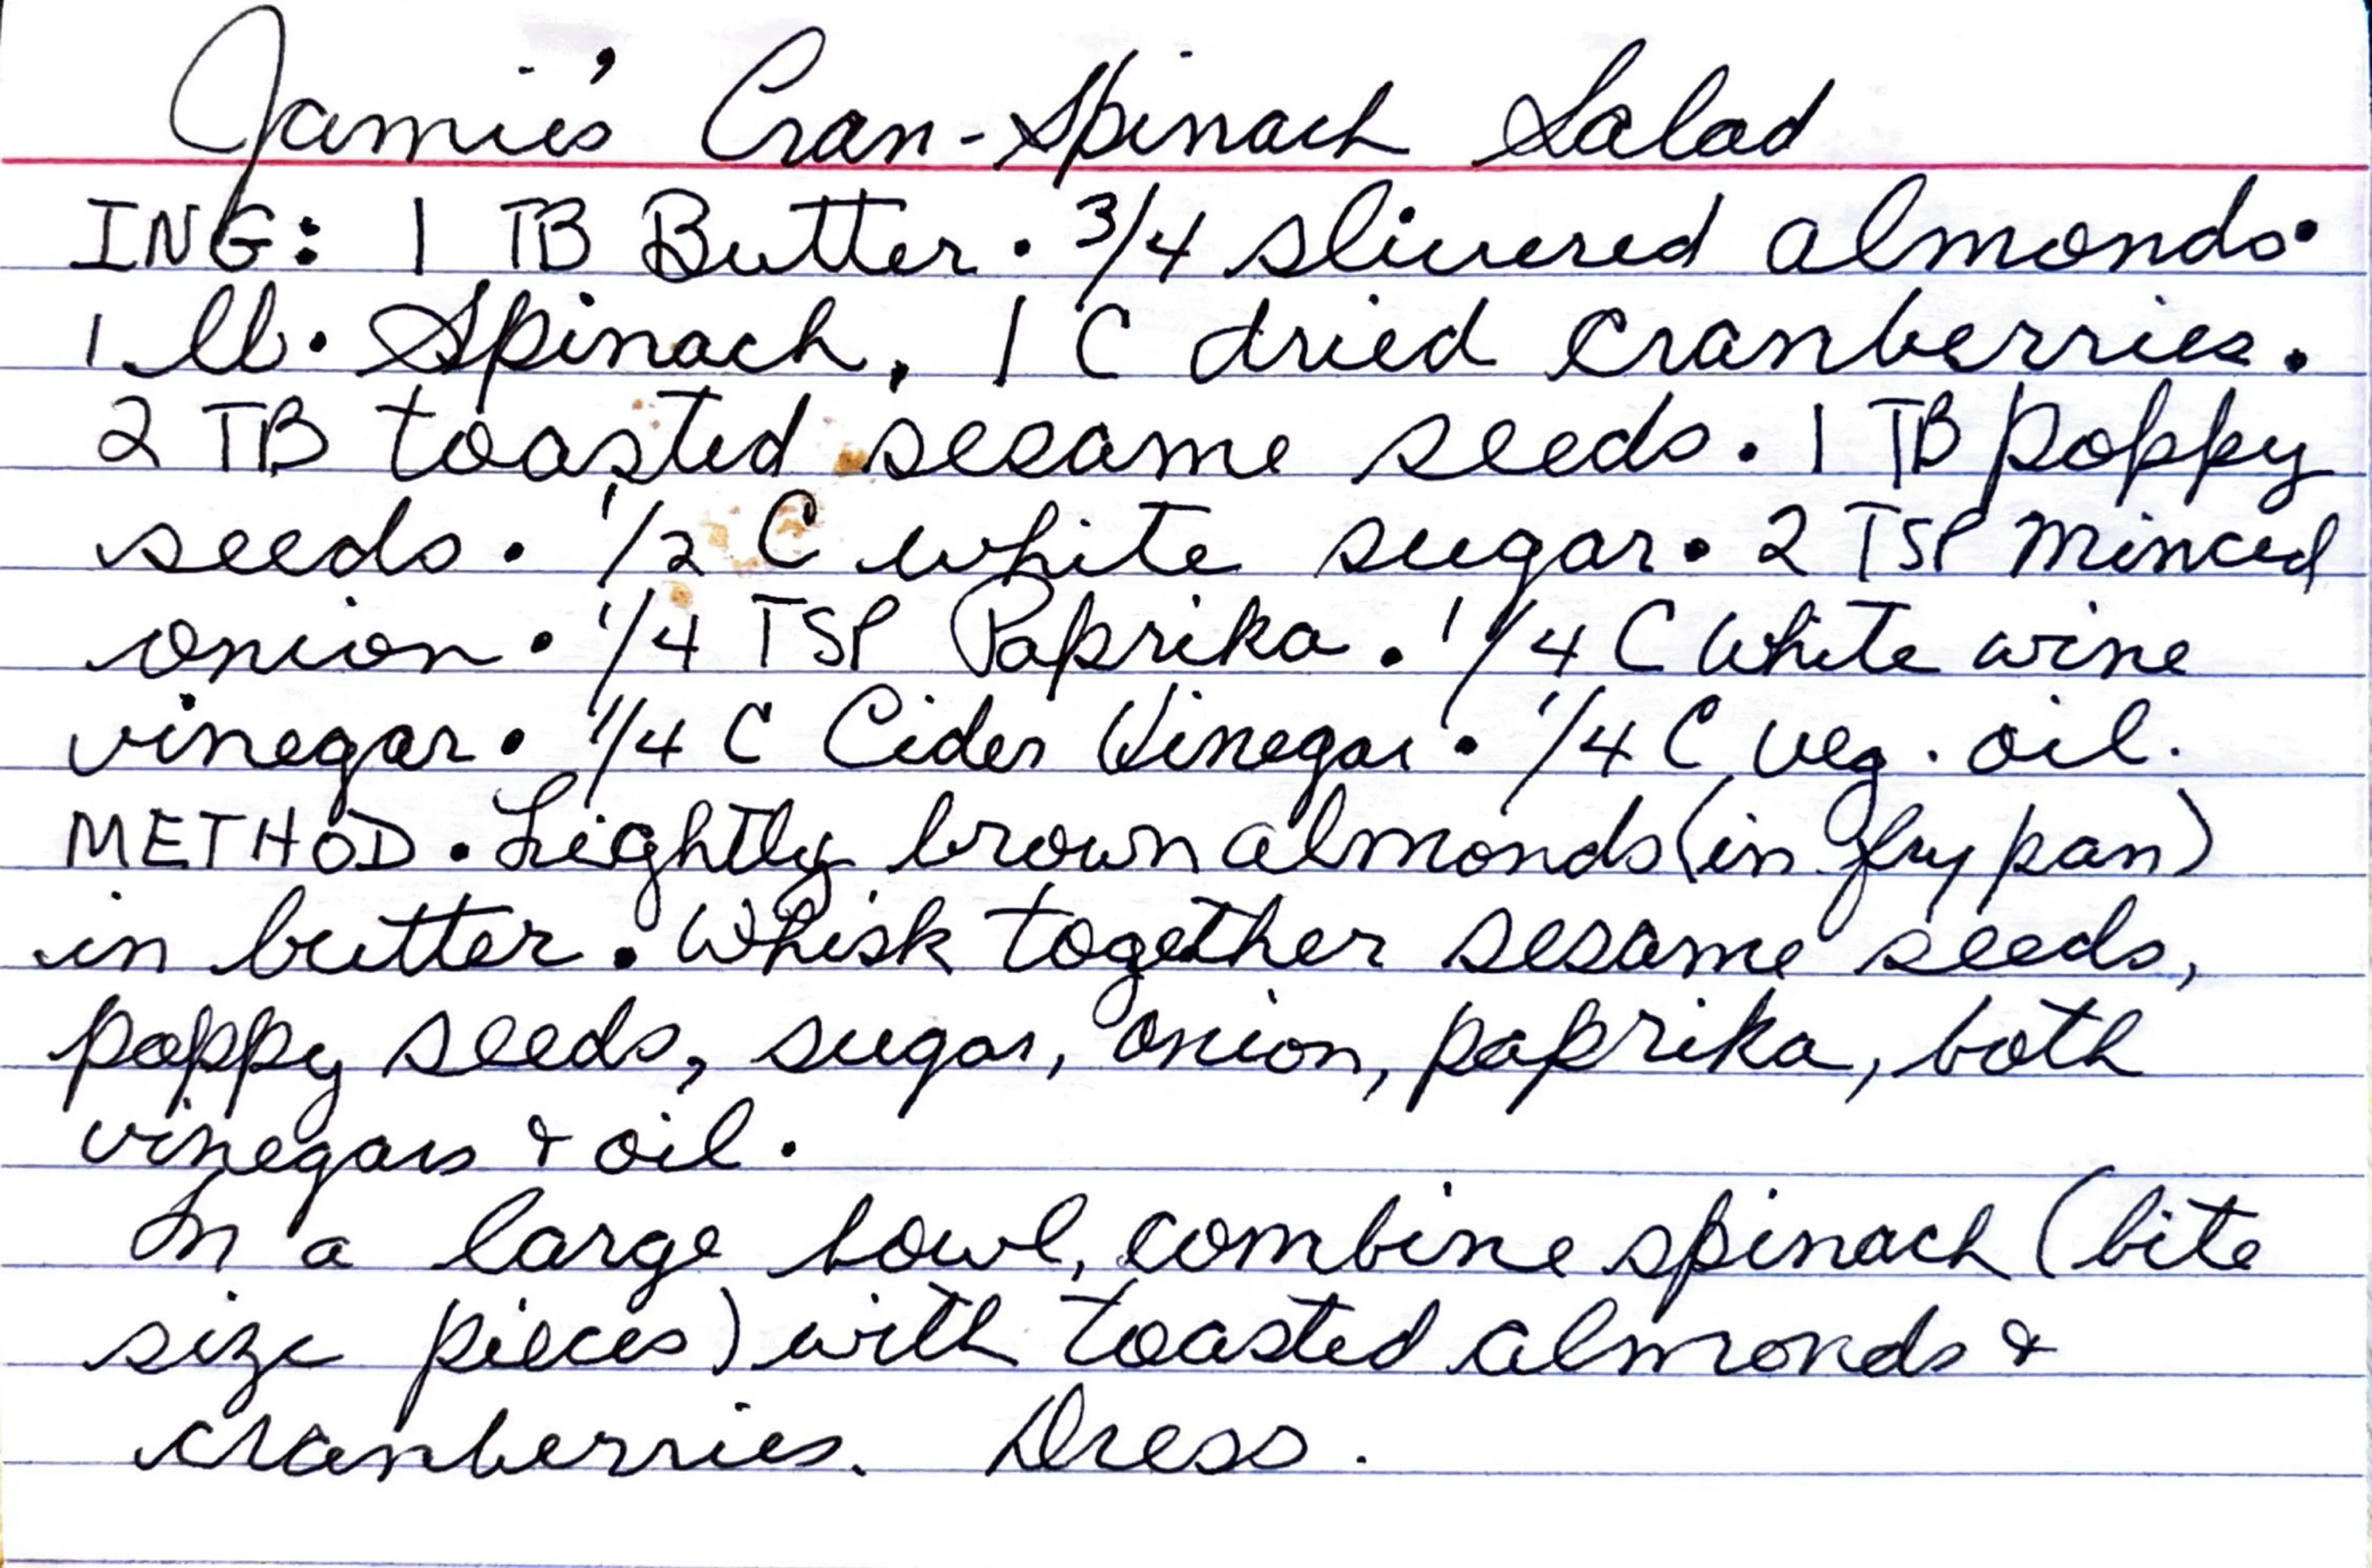 Jamie's Cran-Spinach Salad
ING: 1 TB Butter. 3/4 slivered almonds.
1 lb. Spinach, 1 C dried cranberries.
2 TB toasted sesame seeds. 1 TB poppy
seeds. 1/2 C white sugar. 2 TSP minced
onion. 1/4 TSP Paprika. 1/4 C White wine
vinegar. 1/4 C Cider Vinegar. 1/4 C veg. oil.
METHOD. Lightly brown almonds (in fry pan)
in butter. Whisk together sesame seeds,
poppy seeds, sugar, onion, paprika, both
vinegars & oil.
In a large bowl, combine spinach (bite
size pieces) with toasted almonds &
cranberries. Dress.